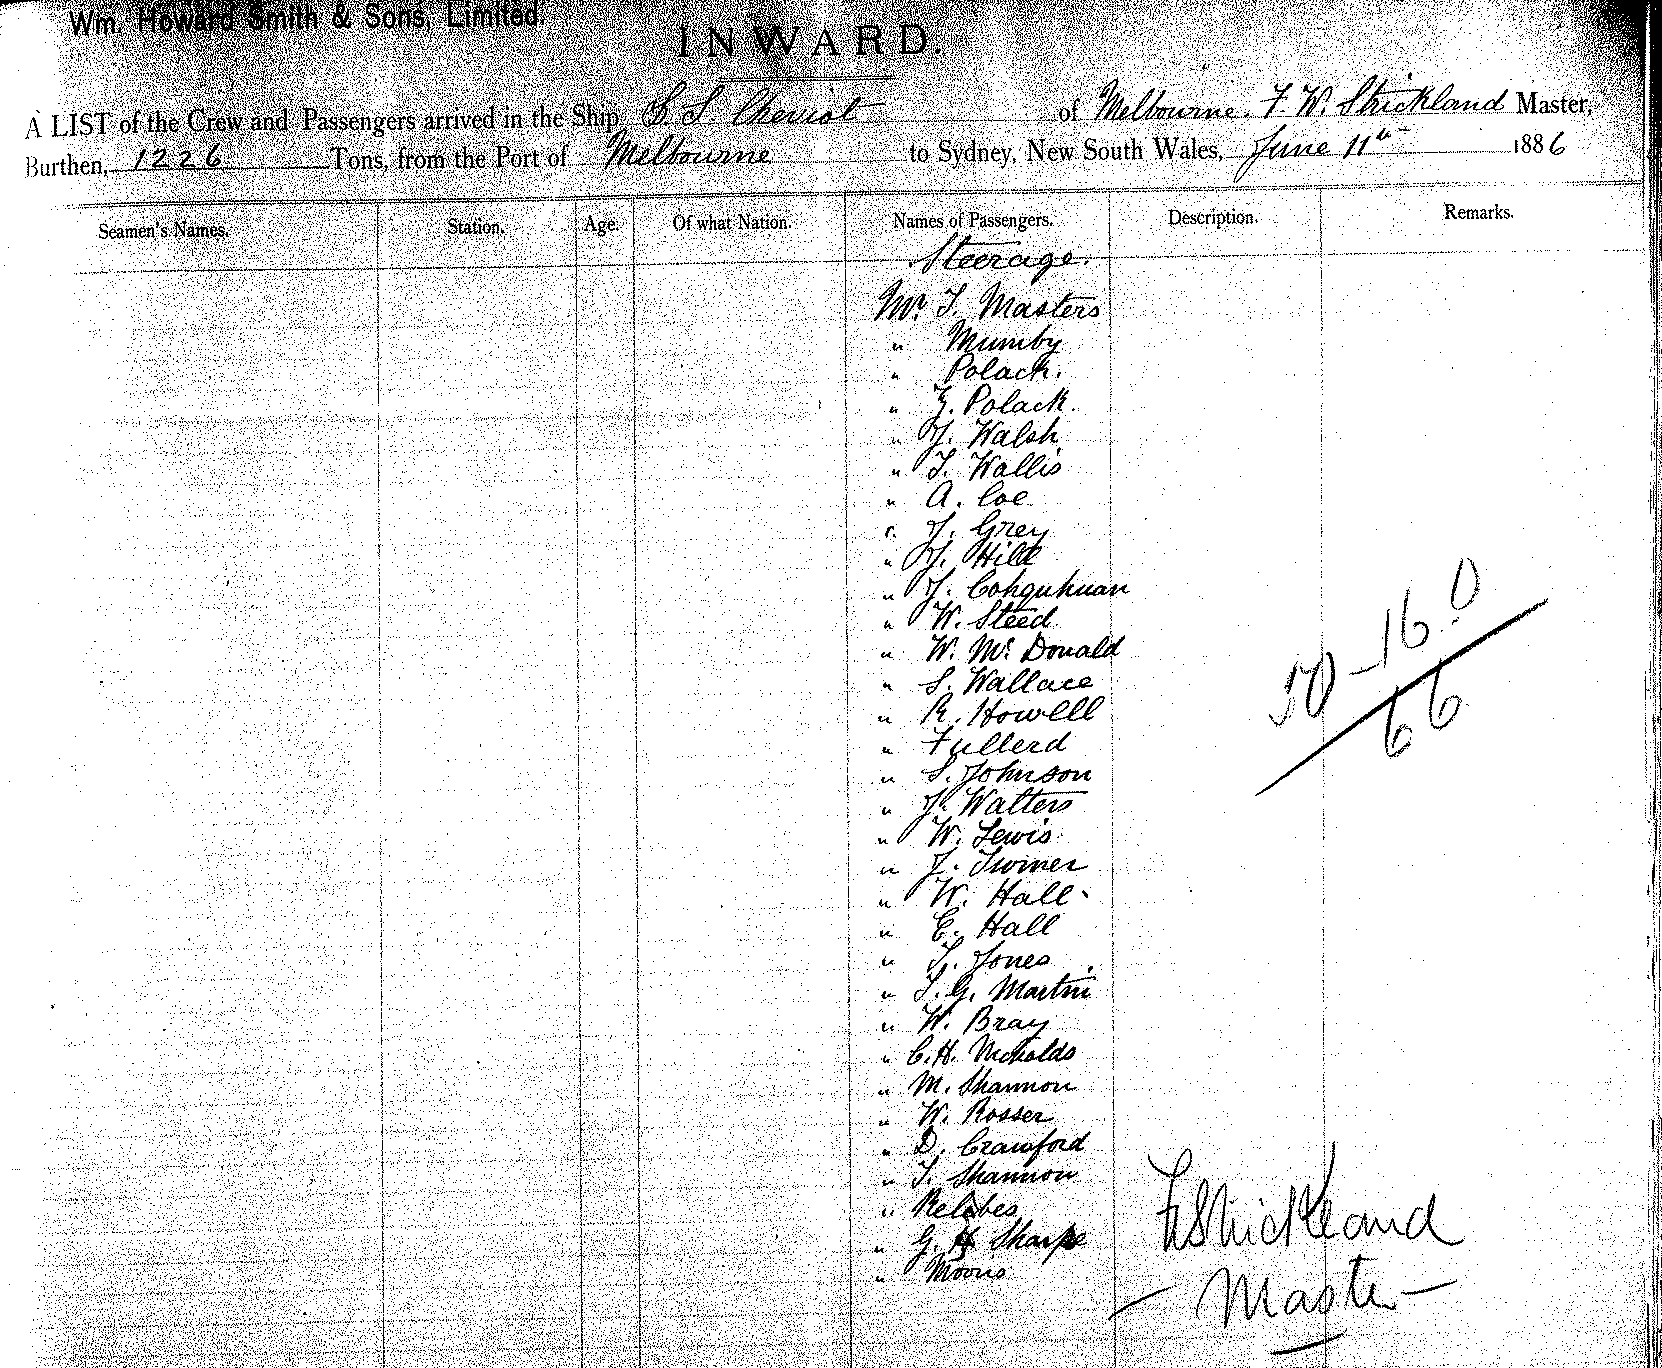 Wm. Howard Smith & Sons, Limited.
INWARD.
A LIST of the Crew and Passengers arrived in the Ship S. S. Cheviot of Melbourne, F. W. Strickland Master,
Burthen, 1226 Tons, from the Port of Melbourne to Sydney, New South Wales, June 11th 1886
Seamen's Names. Station. Age. Of what Nation. Names of Passengers. Description. Remarks.
Steerage.
Mr. T. Masters
" Mumby
" Polack.
" G. Polack.
" J. Walsh
" T. Wallis
" A. Coe
" J. Grey
" J. Hill
" J. Cohquhuan
" W. Steed
" W. Mc Donald
" S. Wallace
" R. Howell
" Fullerd
" S. Johnson
" J. Walters
" W. Lewis
" J. Turner
" W. Hall
" E. Hall
" T. Jones
" T. G. Martin
" W. Bray
" C. H. Nicholds
" M. Shannon
" W. Rosser
" D. Crawford
" T. Shannon
"
" G. Sharpe
" Moons
50 - 16. 0
66
F W Strickland
- Master -